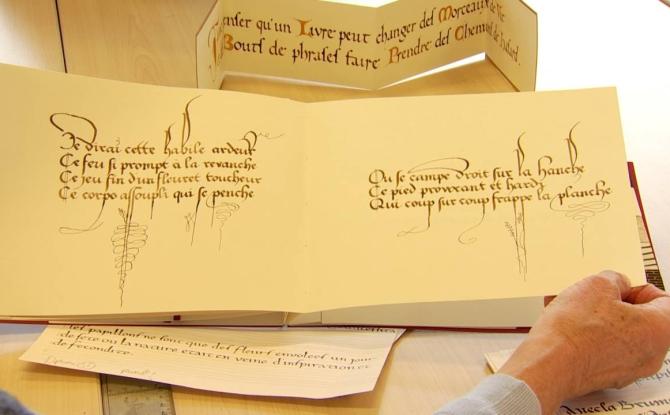 Penser qu'un Livre peut changer des Morceaux de Vie
Bouts de phrases faire Prendre des Chemins de
Je dirai cette habile ardeur
Ce feu si prompt à la revanche
Ce jeu fin d'un fleuret toucheur
Ce corps assoupli qui se penche
Ou se campe droit sur la hanche
Ce pied provoxant et hardy
Qui coup sur coup frappe la planche
papillons ne sont que des fleurs envolees un jour
de fete ou la nature etait en veine d'inspiration et
de fecondite.